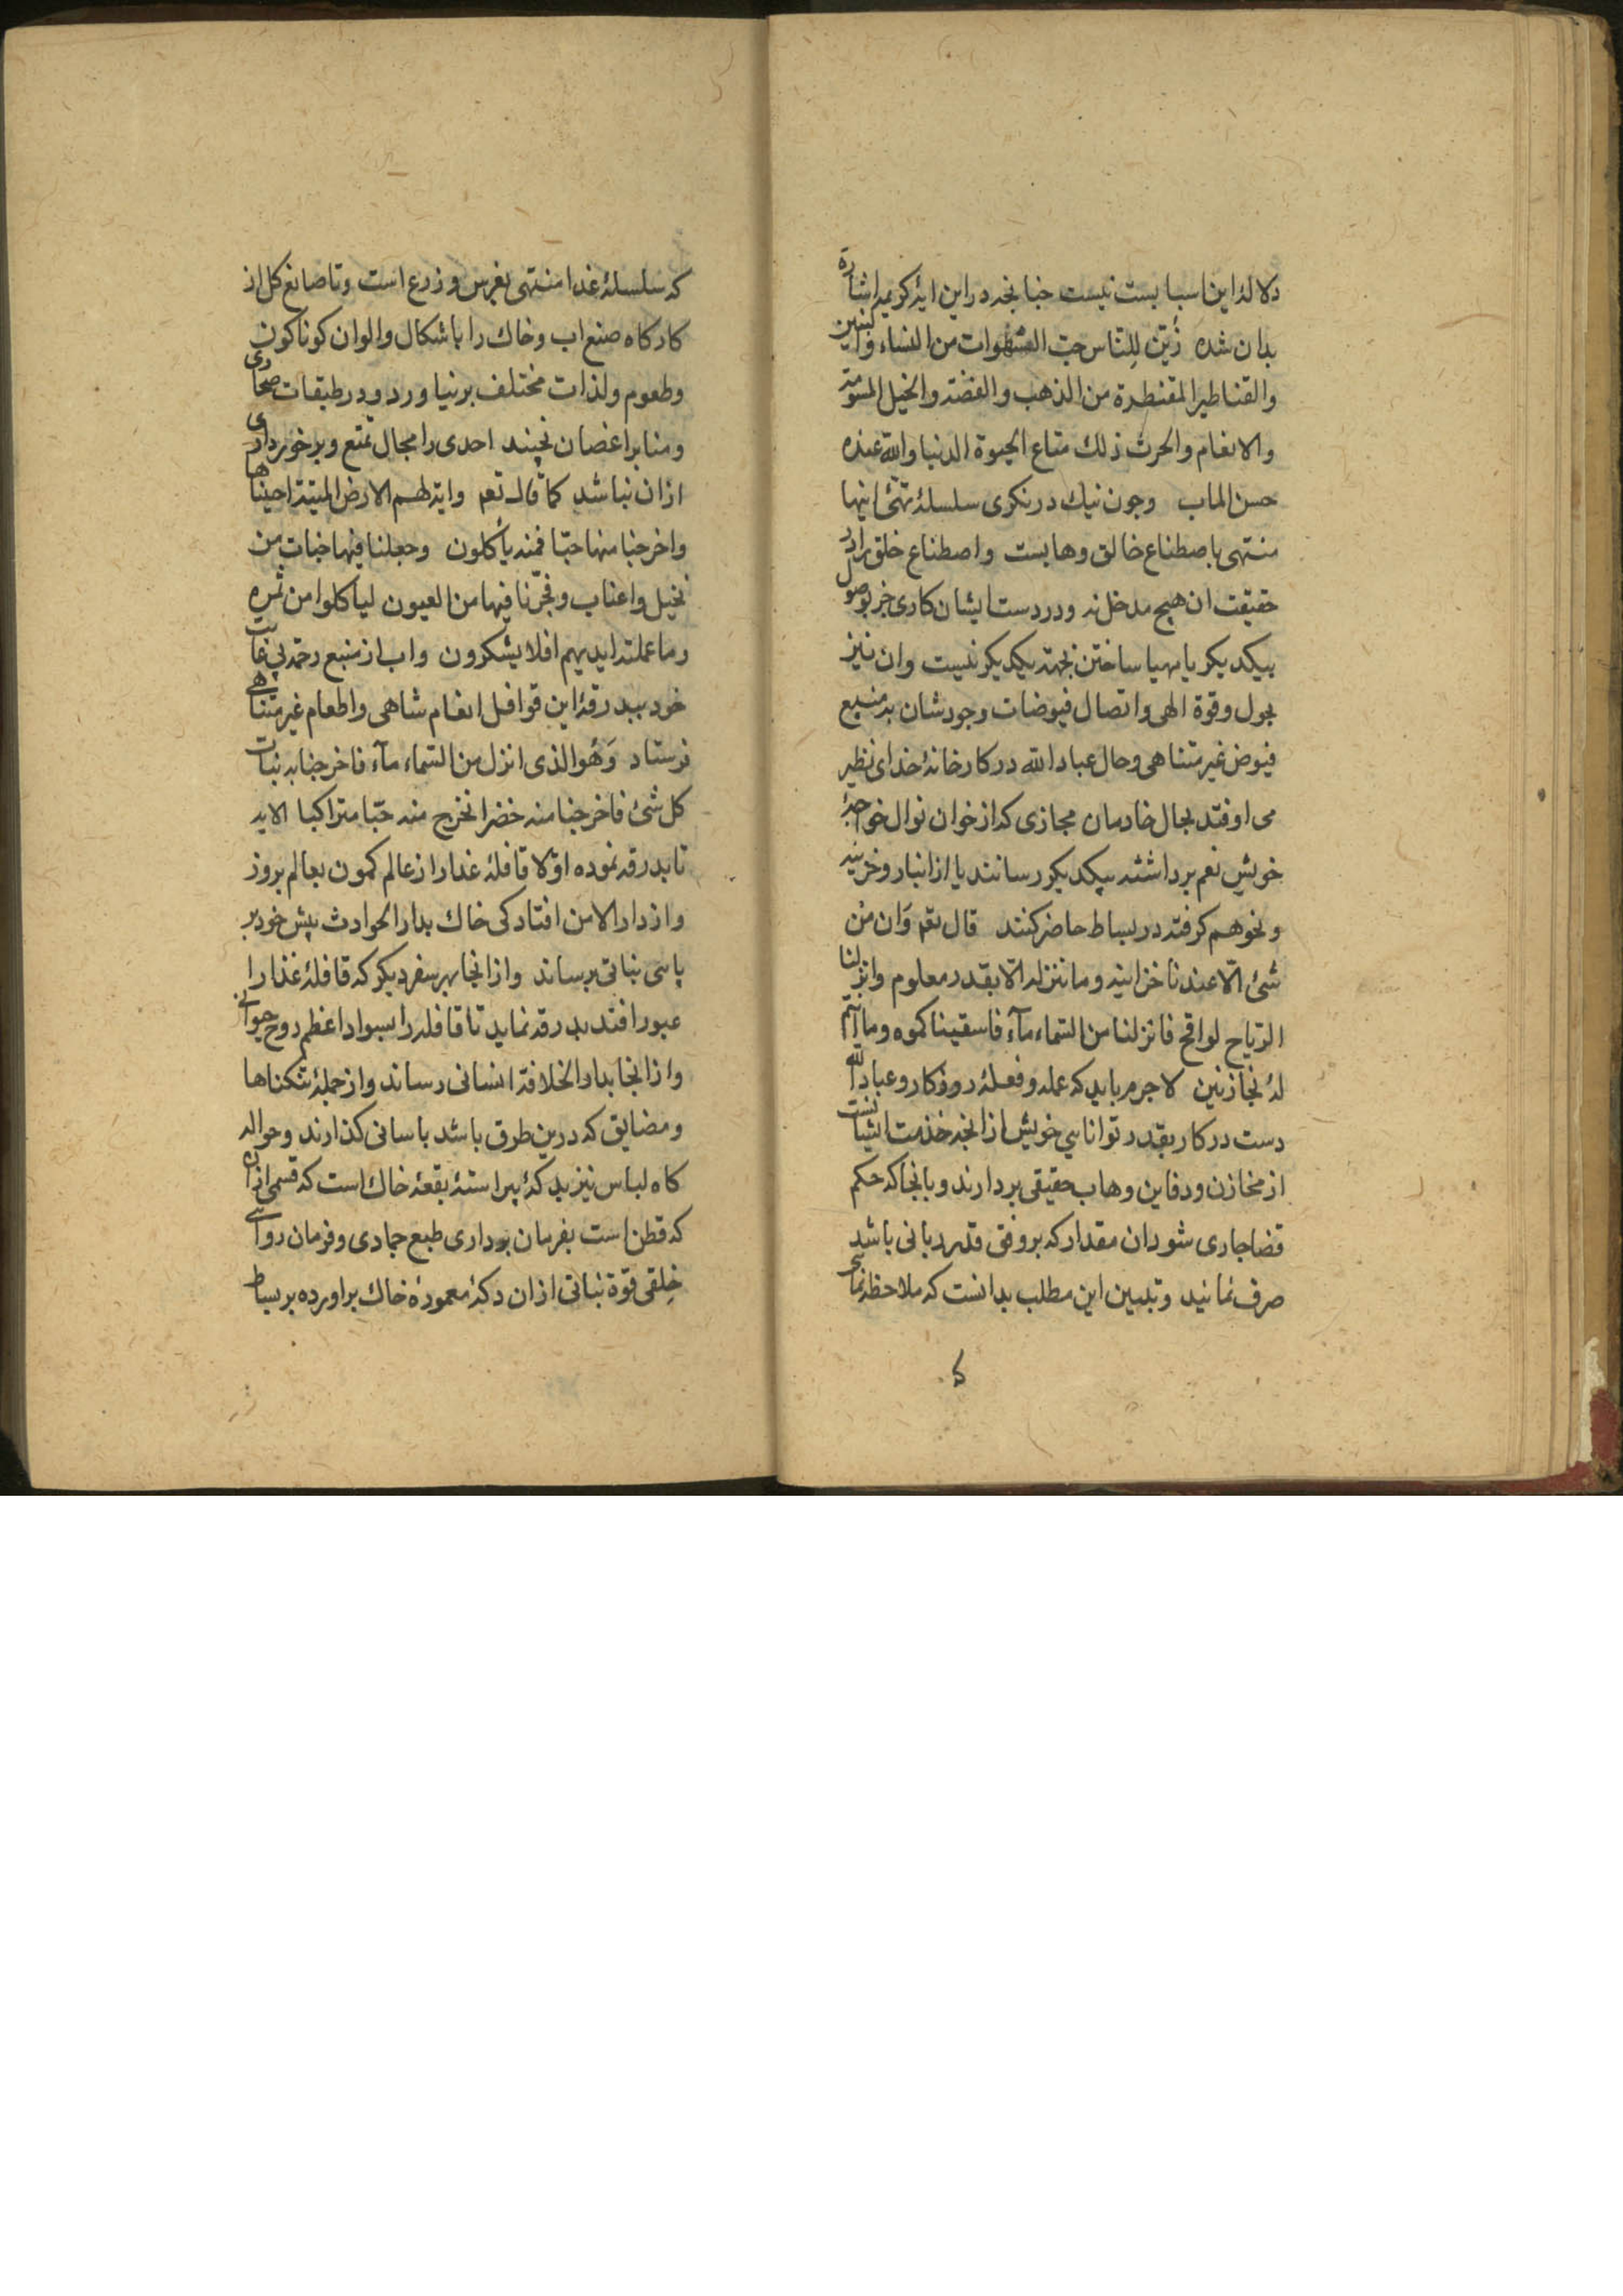 دلالهٔ این اسبابست نیست جنانجه در این ایهٔ کریمه اشارة
بدان شده زُیّن لِلنّاس حبّ الشهوات من النساء والبنین
والقناطیر المقنطرة من الذهب والفضة والخیل المسومة
والانعام والحرث ذلك متاع الحیوة الدنیا والله عنده
حسن الماب وجون نیك در نکری سلسلهٔ تهیّٔ اینها
منتهی باصطناع خالق وهابست واصطناع خلق را در
حقیقت ان هیج مدخل نه ودر دست ایشان کاری جز وصول
بیکدیکر یا مهیا ساختن بجهة یکدیکر نیست وان نیز
بحول وقوة الهی واتصال فیوضات وجودشان بمنبع
فیوض غیر متناهی وحال عباد الله در کارخانهٔ خدای نظیر
می اوفتد بحال خادمان مجازی که از خوان نوال خواجهٔ
خویش نعم برداشته بیکدیکر رسانند یا از انبار وخزینه
ونحوهم کرفته در بساط حاضر کنند قال تعم وَان من
شیٔ الّا عندنا خزاینه وما ننزله الّا بقدر معلوم وانزلنا
الریاح لواقح فانزلنا من السّماء مآء فاسقیناکموه وما انتم
لهٔ بخازنین لاجرم باید که عمله وفعلهٔ روزکار وعباد الله
دست در کار بقدر توانایی خویش از انجه خذمت ایشانست
از مخازن ودفاین وهاب حقیقی بردارند وبانجا که حکم
قضا جاری شود ان مقدار که بروفق قدر ربانی باشد
صرف نمانید وتبیین این مطلب بدانست که ملاحظه نمائی
که
که سلسلهٔ غذا منتهی بغرس وزرع است وتا صانع کل از
کارکاه صنع اب وخاك را باشکال والوان کوناکون
وطعوم ولذات مختلف برنیاورد ودر طبقات صحاری
ومنابر اغصان نجیند احدی را مجال تمتع وبرخورداری
ازان نباشد کما قال تعم وایة لهم الارض المیتة احیناها
واخرجنا منها حبّا فمنه یأکلون وجعلنا فیها جنات من
نخیل واعناب وفجّرنا فیها من العیون لیاکلوا من ثمره
وما عملته ایدیهم افلا یشکرون واب از منبع رحمة بی غایت
خود ببدرقهٔ این قوافل انعام شاهی واطعام غیر متناهی
فرستاد وَهُو الذی انزل من السّماء مآء فاخرجنا به نبات
کل شیٔ فاخرجنا منه خضرا نخرج منه حبّا متراکبا الایه
تا بدرقه نموده اوّلا قافلهٔ غذا را از عالم کمون بعالم بروز
واز دار الامن افتادکی خاك بدار الحوادث پیش خود بر
پای نباتی برساند واز انجا بهر سفر دیکر که قافلهٔ غذا را
عبور افتد بدرقه نماید تا قافله را بسواد اعظم روح حیوانی
واز انجا بدار الخلافة انسانی رساند واز جملهٔ تنکناها
ومضایق که درین طرق باشد باسانی کذارند وحواله
کاه لباس نیز بدکهٔ پیراستهٔ بقعهٔ خاك است که قسمی ازان
که قطن است بفرمان برداری طبع جمادی وفرمان روائی
خِلقی قوّة نباتی ازان دکهٔ معمورهٔ خاك براورده بر بساط